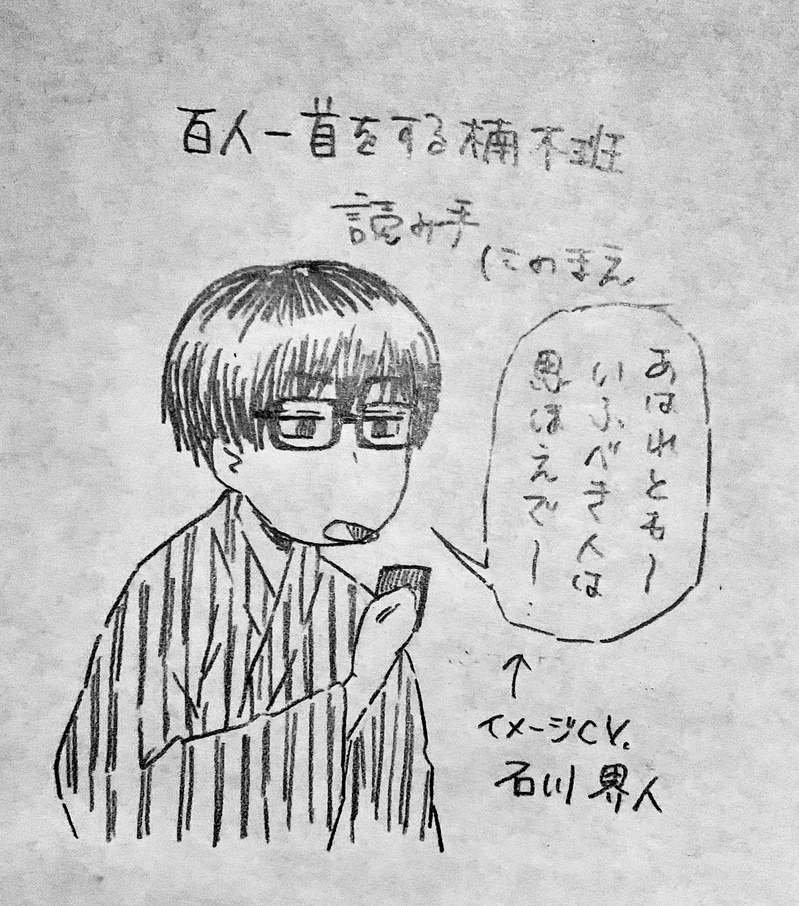 百人一首をする楠木班
読み手
にのまえ
あはれとも〜
いふべき人は
思ほえで〜
↑
イメージCV.
石川界人